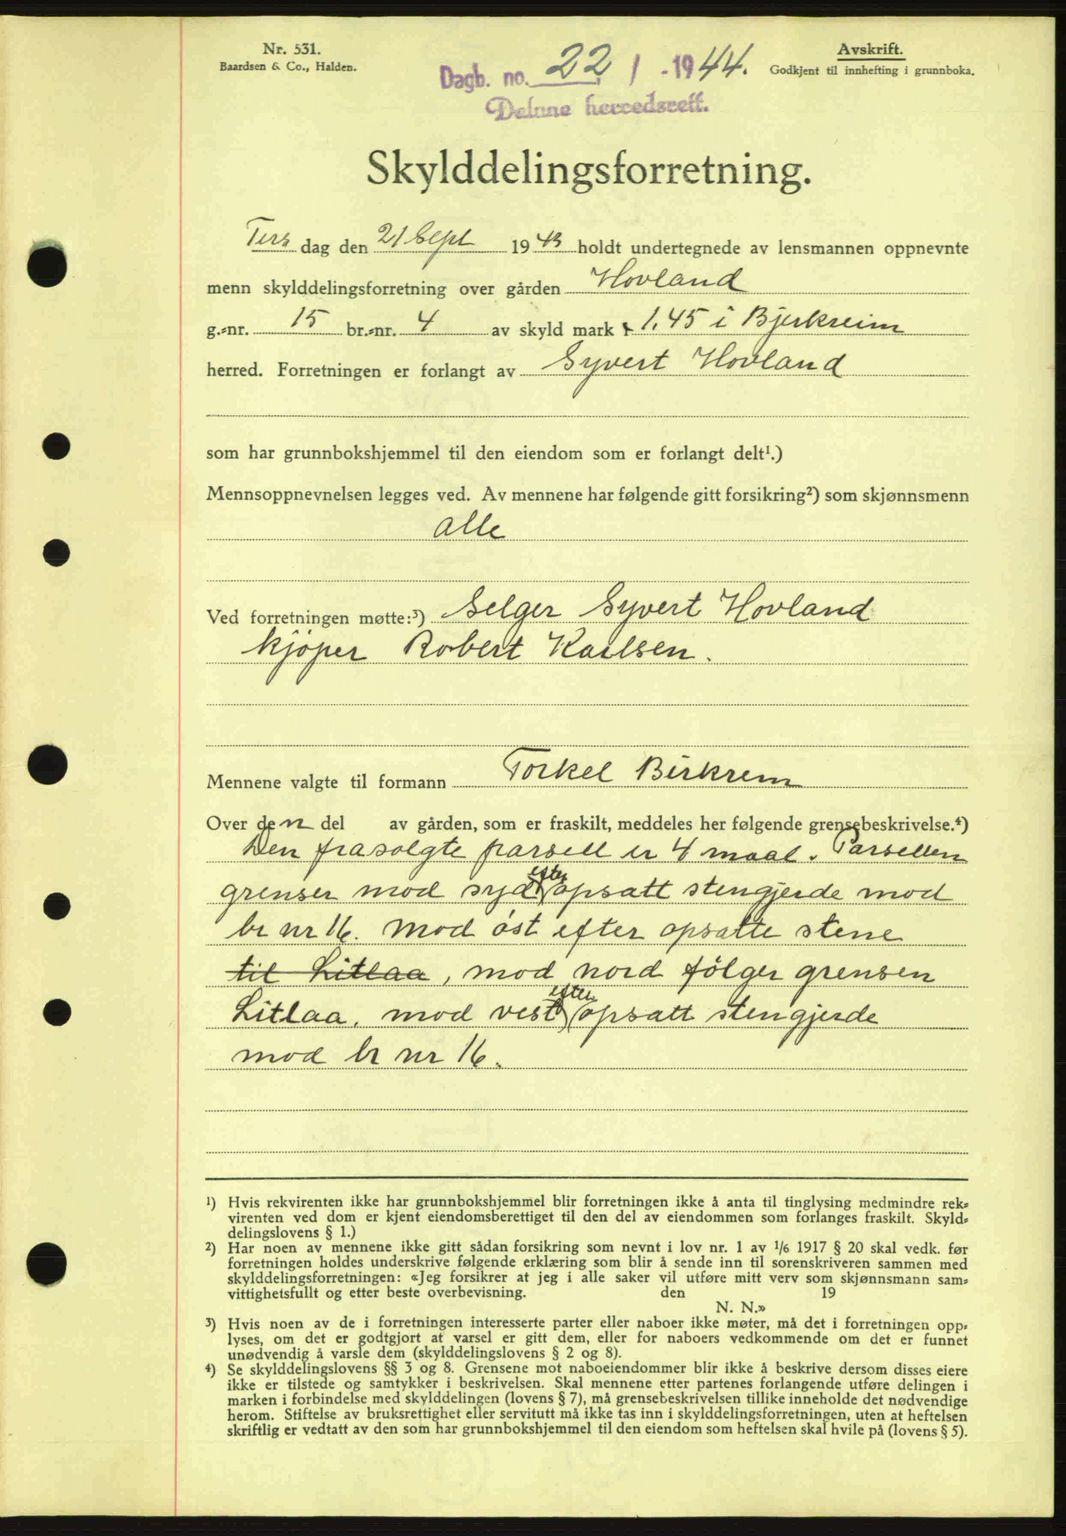 Nr. 531.
Baardsen & Co., Halden.
Dagb. no. 22 / 1944.
Dalane herredsrett.
Avskrift.
Godkjent til innhefting i grunnboka.
Skylddelingsforretning.
Tirs dag den 21 Sept 1943 holdt undertegnede av lensmannen oppnevnte
menn skylddelingsforretning over gården Hovland
g.=nr. 15 br.=nr. 4 av skyld mark 1.45 i Bjerkreim
herred. Forretningen er forlangt av Syvert Hovland
som har grunnbokshjemmel til den eiendom som er forlangt delt¹.)
Mennsoppnevnelsen legges ved. Av mennene har følgende gitt forsikring²) som skjønnsmenn
alle
Ved forretningen møtte:³) Selger Syvert Hovland
kjøper Robert Karlsen.
Mennene valgte til formann Torkel Birkrem
Over den del av gården, som er fraskilt, meddeles her følgende grensebeskrivelse.⁴)
Den frasolgte parsell er 4 maal. Parsellen
grenser mod syd efter opsatt stengjerde mod
br nr 16. Mod öst efter opsatte stene
til Litlaa, mod nord fölger grensen
Litlaa. mod vest efter opsatt stengjerde
mod br nr 16.
¹) Hvis rekvirenten ikke har grunnbokshjemmel blir forretningen ikke å anta til tinglysing medmindre rek=
virenten ved dom er kjent eiendomsberettiget til den del av eiendommen som forlanges fraskilt. Skyld=
delingslovens § 1.)
²) Har noen av mennene ikke gitt sådan forsikring som nevnt i lov nr. 1 av 1/6 1917 § 20 skal vedk. før
forretningen holdes underskrive følgende erklæring som blir å sende inn til sorenskriveren sammen med
skylddelingsforretningen: «Jeg forsikrer at jeg i alle saker vil utføre mitt verv som skjønnsmann sam=
vittighetsfullt og etter beste overbevisning. den 19
N. N.»
³) Hvis noen av de i forretningen interesserte parter eller naboer ikke møter, må det i forretningen opp=
lyses, om det er godtgjort at varsel er gitt dem, eller for naboers vedkommende om det er funnet
unødvendig å varsle dem (skylddelingslovens § 2 og 8).
⁴) Se skylddelingslovens §§ 3 og 8. Grensene mot naboeiendommer blir ikke å beskrive dersom disses eiere
ikke er tilstede og samtykker i beskrivelsen. Skal mennene etter partenes forlangende utføre delingen i
marken i forbindelse med skylddelingen (lovens § 7), må grensebeskrivelsen tillike inneholde det nødvendige
herom. Stiftelse av bruksrettighet eller servitutt må ikke tas inn i skylddelingsforretningen, uten at heftelsen
skriftlig er vedtatt av den som har grunnbokshjemmel til den eiendom som heftelsen skal hvile på (lovens § 5).